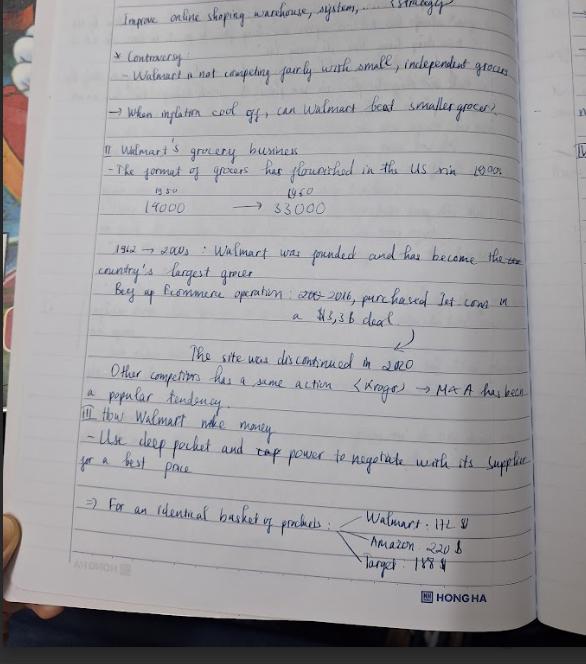 (strategy
Improve online shoping warehouse, system, ...
* Controversy:
- Walmart is not competing fairly with small, independent grocers
→ When inflation cool off, can Walmart beat smaller grocer?
II Walmart's grocery business
- The format of grocers has flourished in the US in
1950 1960
14000 → 33000
1962 → 2000s : Walmart was founded and has become the
country's largest grocer
Beef up Ecommerce operation : 2016, purchased Jet.com in
a $3,3B deal.
The site was discontinued in 2020
Other competitors has a same action (Kroger) → M&A has been
a popular tendency.
III How Walmart make money
- Use deep pocket and power to negotiate with its supplier
for a best price
=> For an identical basket of products :
Walmart : $
Amazon : 220 $
Target : 188 $
HONG HA
HONG HA